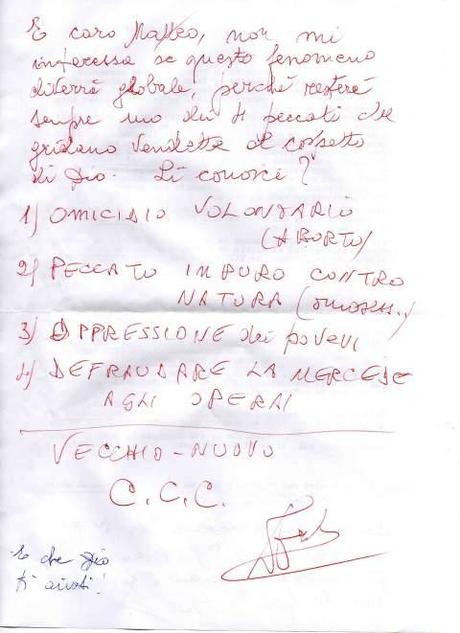 E caro Matteo, non mi
interessa se questo fenomeno
diverrà globale, perché resterà
sempre uno dei 4 peccati che
gridano vendetta al cospetto
di Dio. Li conosci?
1) OMICIDIO VOLONTARIO
(ABORTO)
2) PECCATO IMPURO CONTRO
NATURA (omosess..)
3) OPPRESSIONE dei poveri
4) DEFRAUDARE LA MERCEDE
AGLI OPERAI
VECCHIO - NUOVO
C.C.C.
E che Dio
ti aiuti!